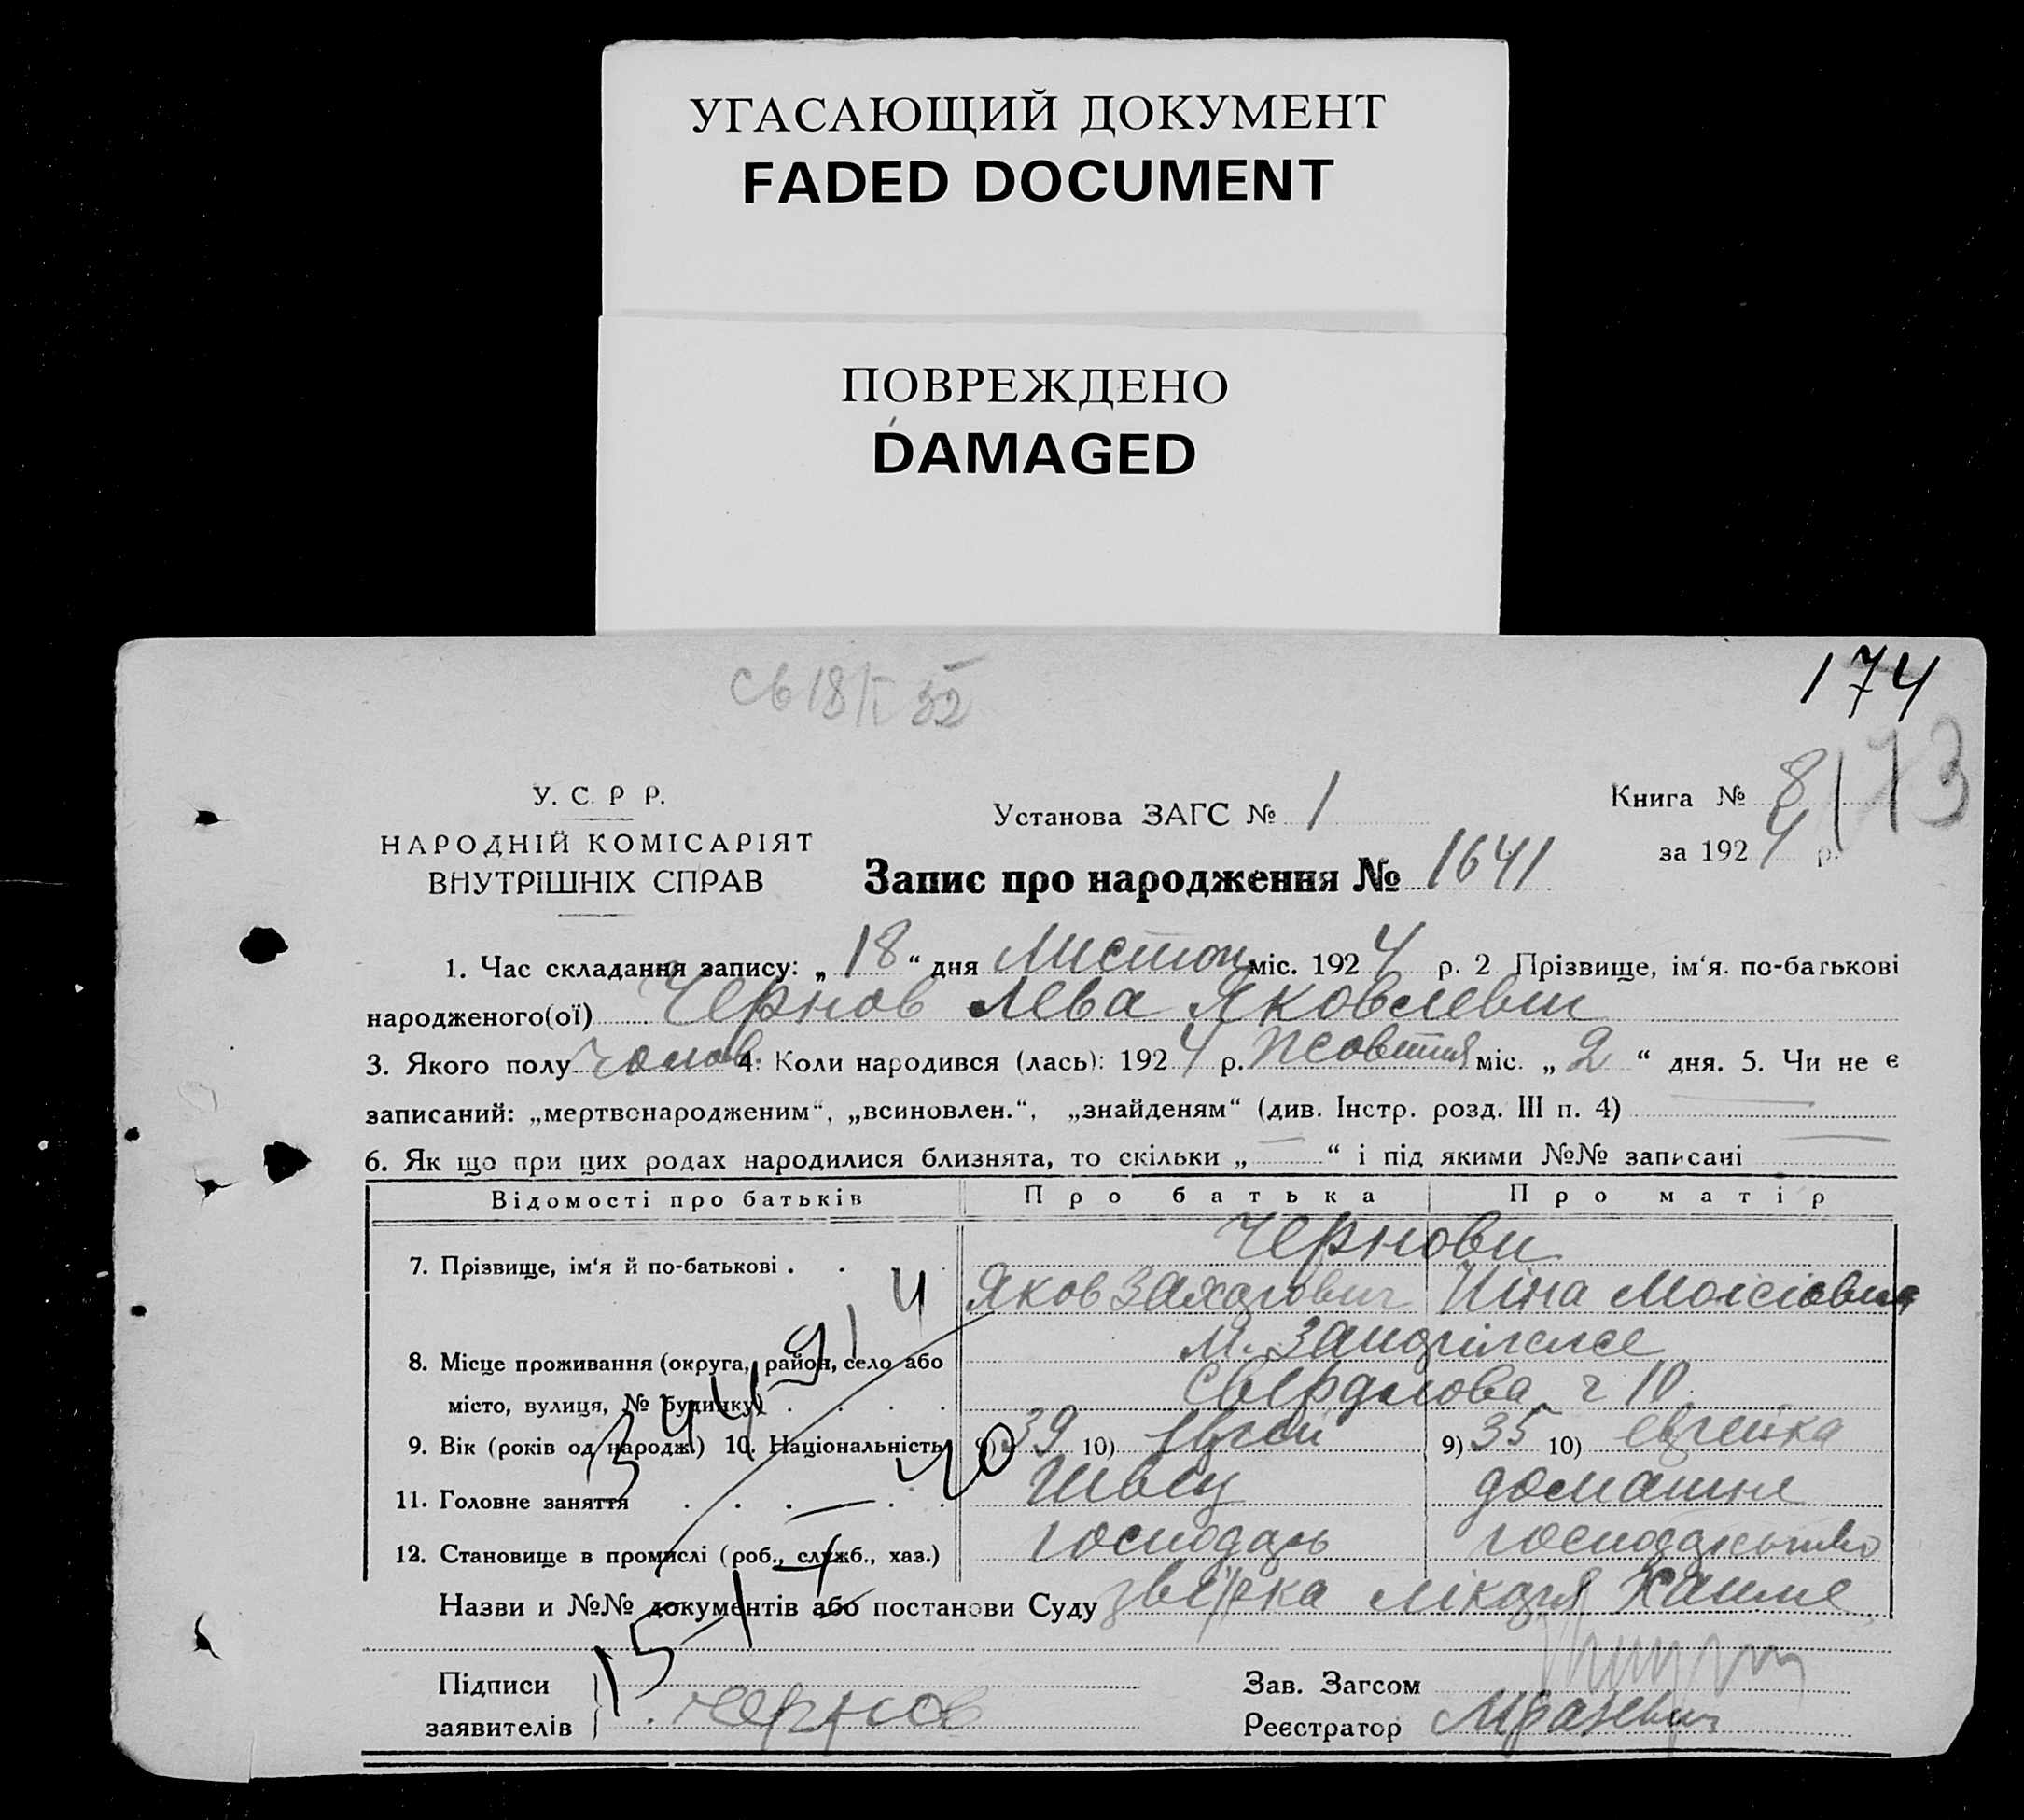 УГАСАЮЩИЙ ДОКУМЕНТ
FADED DOCUMENT
ПОВРЕЖДЕНО
DAMAGED
174
173
У. С. Р Р.
НАРОДНІЙ КОМІСАРІЯТ
ВНУТРІШНІХ СПРАВ
Установа ЗАГС № 1
Книга № 8
за 1924 р.
Запис про народження № 1641
1. Час складання запису: „ 18 “ дня Листоп міс. 1924 р. 2 Прізвище, ім‘я. по-батькові
народженого(ої) Чернов Лева Яковлевич
3. Якого полу чолов. 4. Коли народився (лась): 1924 р. Жовтня міс. „ 2 “ дня. 5. Чи не є
записаний: „мертвонародженим“, „всиновлен.“, „знайденям“ (див. Інстр. розд. III п. 4)
6. Як що при цих родах народилися близнята, то скільки „ — “ і під якими №№ записані —
Відомості про батьків Про батька Про матір
Чернови
7. Прізвище, ім‘я й по-батькові . . .
Яков Захарович
8. Місце проживання (округа, район, село або
м. Запоріжже
місто, вулиця, № будинку) . . . .
Свердлова 10
9. Вік (років од народж.) 10. Національність 9) 39 10) Єврей 9) 35 10) Єврейка
11. Головне заняття . . . . . Швец домашнє
12. Становище в промислі (роб., служб., хаз.) господарь господарьство
Назви и №№ документів або постанови Суду лікаря
Підписи
заявителів Чернов
Зав. Загсом
Реєстратор